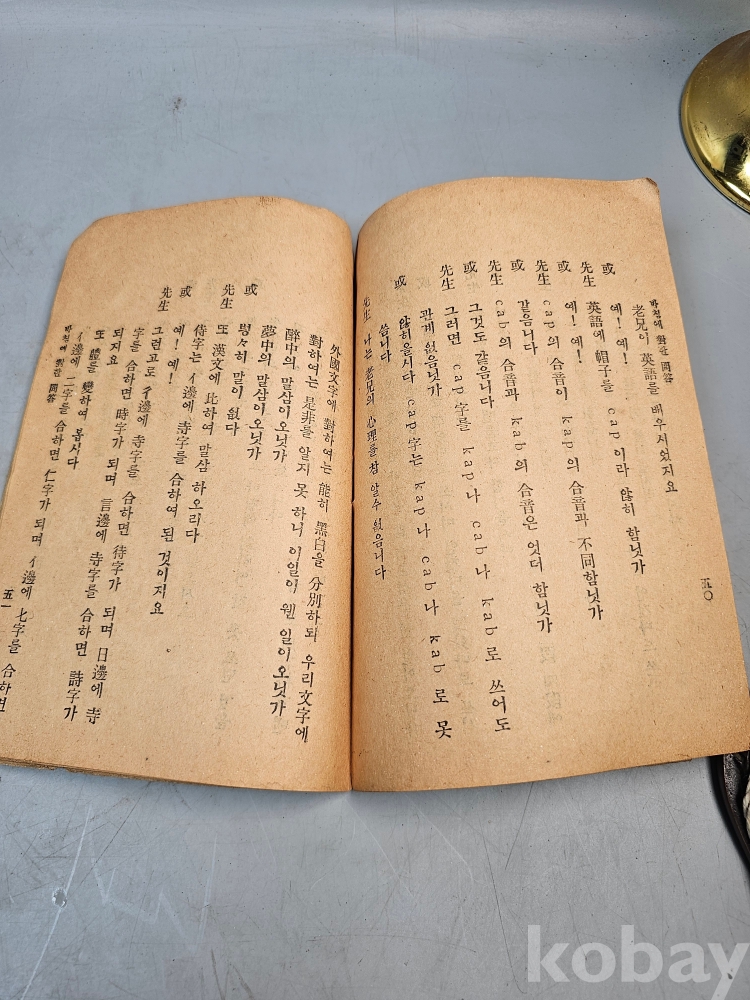 바침에 對한 問答
五〇
老兄이 英語를 배우시었지요
或 예! 예!
先生 英語에 帽子를 cap이라 않히 함닛가
或 예! 예!
先生 cap의 合音이 kap의 合音과 不同함닛가
或 같음니다
先生 cab의 合音과 kab의 合音은 엇더 함닛가
或 그것도 같음니다
先生 그러면 cap字를 kap나 cab나 kab로 쓰어도
관계 없음닛가
或 않히올시다 cap字는 kap나 cab나 kab로 못
씁니다
先生 나는 老兄의 心理를 참 알수 없음니다
外國文字에 對하여는 能히 黑白을 分別하되 우리文字에
對하여는 是非를 알지 못 하니 이일이 웬 일이오닛가
醉中의 말삼이오닛가
夢中의 말삼이오닛가
或 々히 말이 없다
先生 또 漢文에 比하여 말삼 하오리다
侍字는 亻邊에 寺字를 合하여 된 것이지요
或 예! 예!
先生 그런고로 彳邊에 寺字를 合하면 待字가 되며 日邊에 寺
字를 合하면 時字가 되며 言邊에 寺字를 合하면 詩字가
되지요
또 體를 變하여 봅시다
亻邊에 二字를 合하면 仁字가 되며 亻邊에 七字를 合하면
바침에 對한 問答
五一
kobay